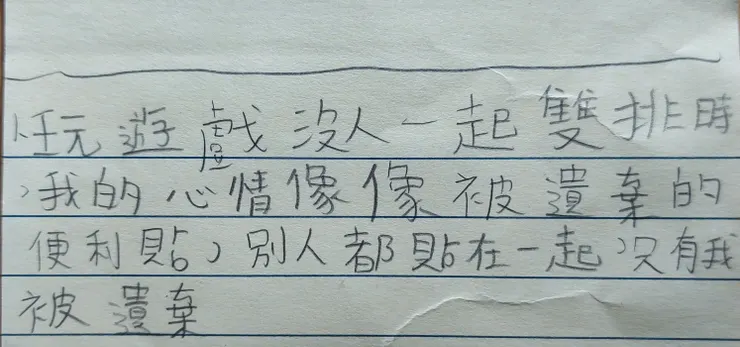 1.在玩遊戲沒人一起雙排時
,我的心情像像被遺棄的
便利貼,別人都貼在一起,只有我
被遺棄